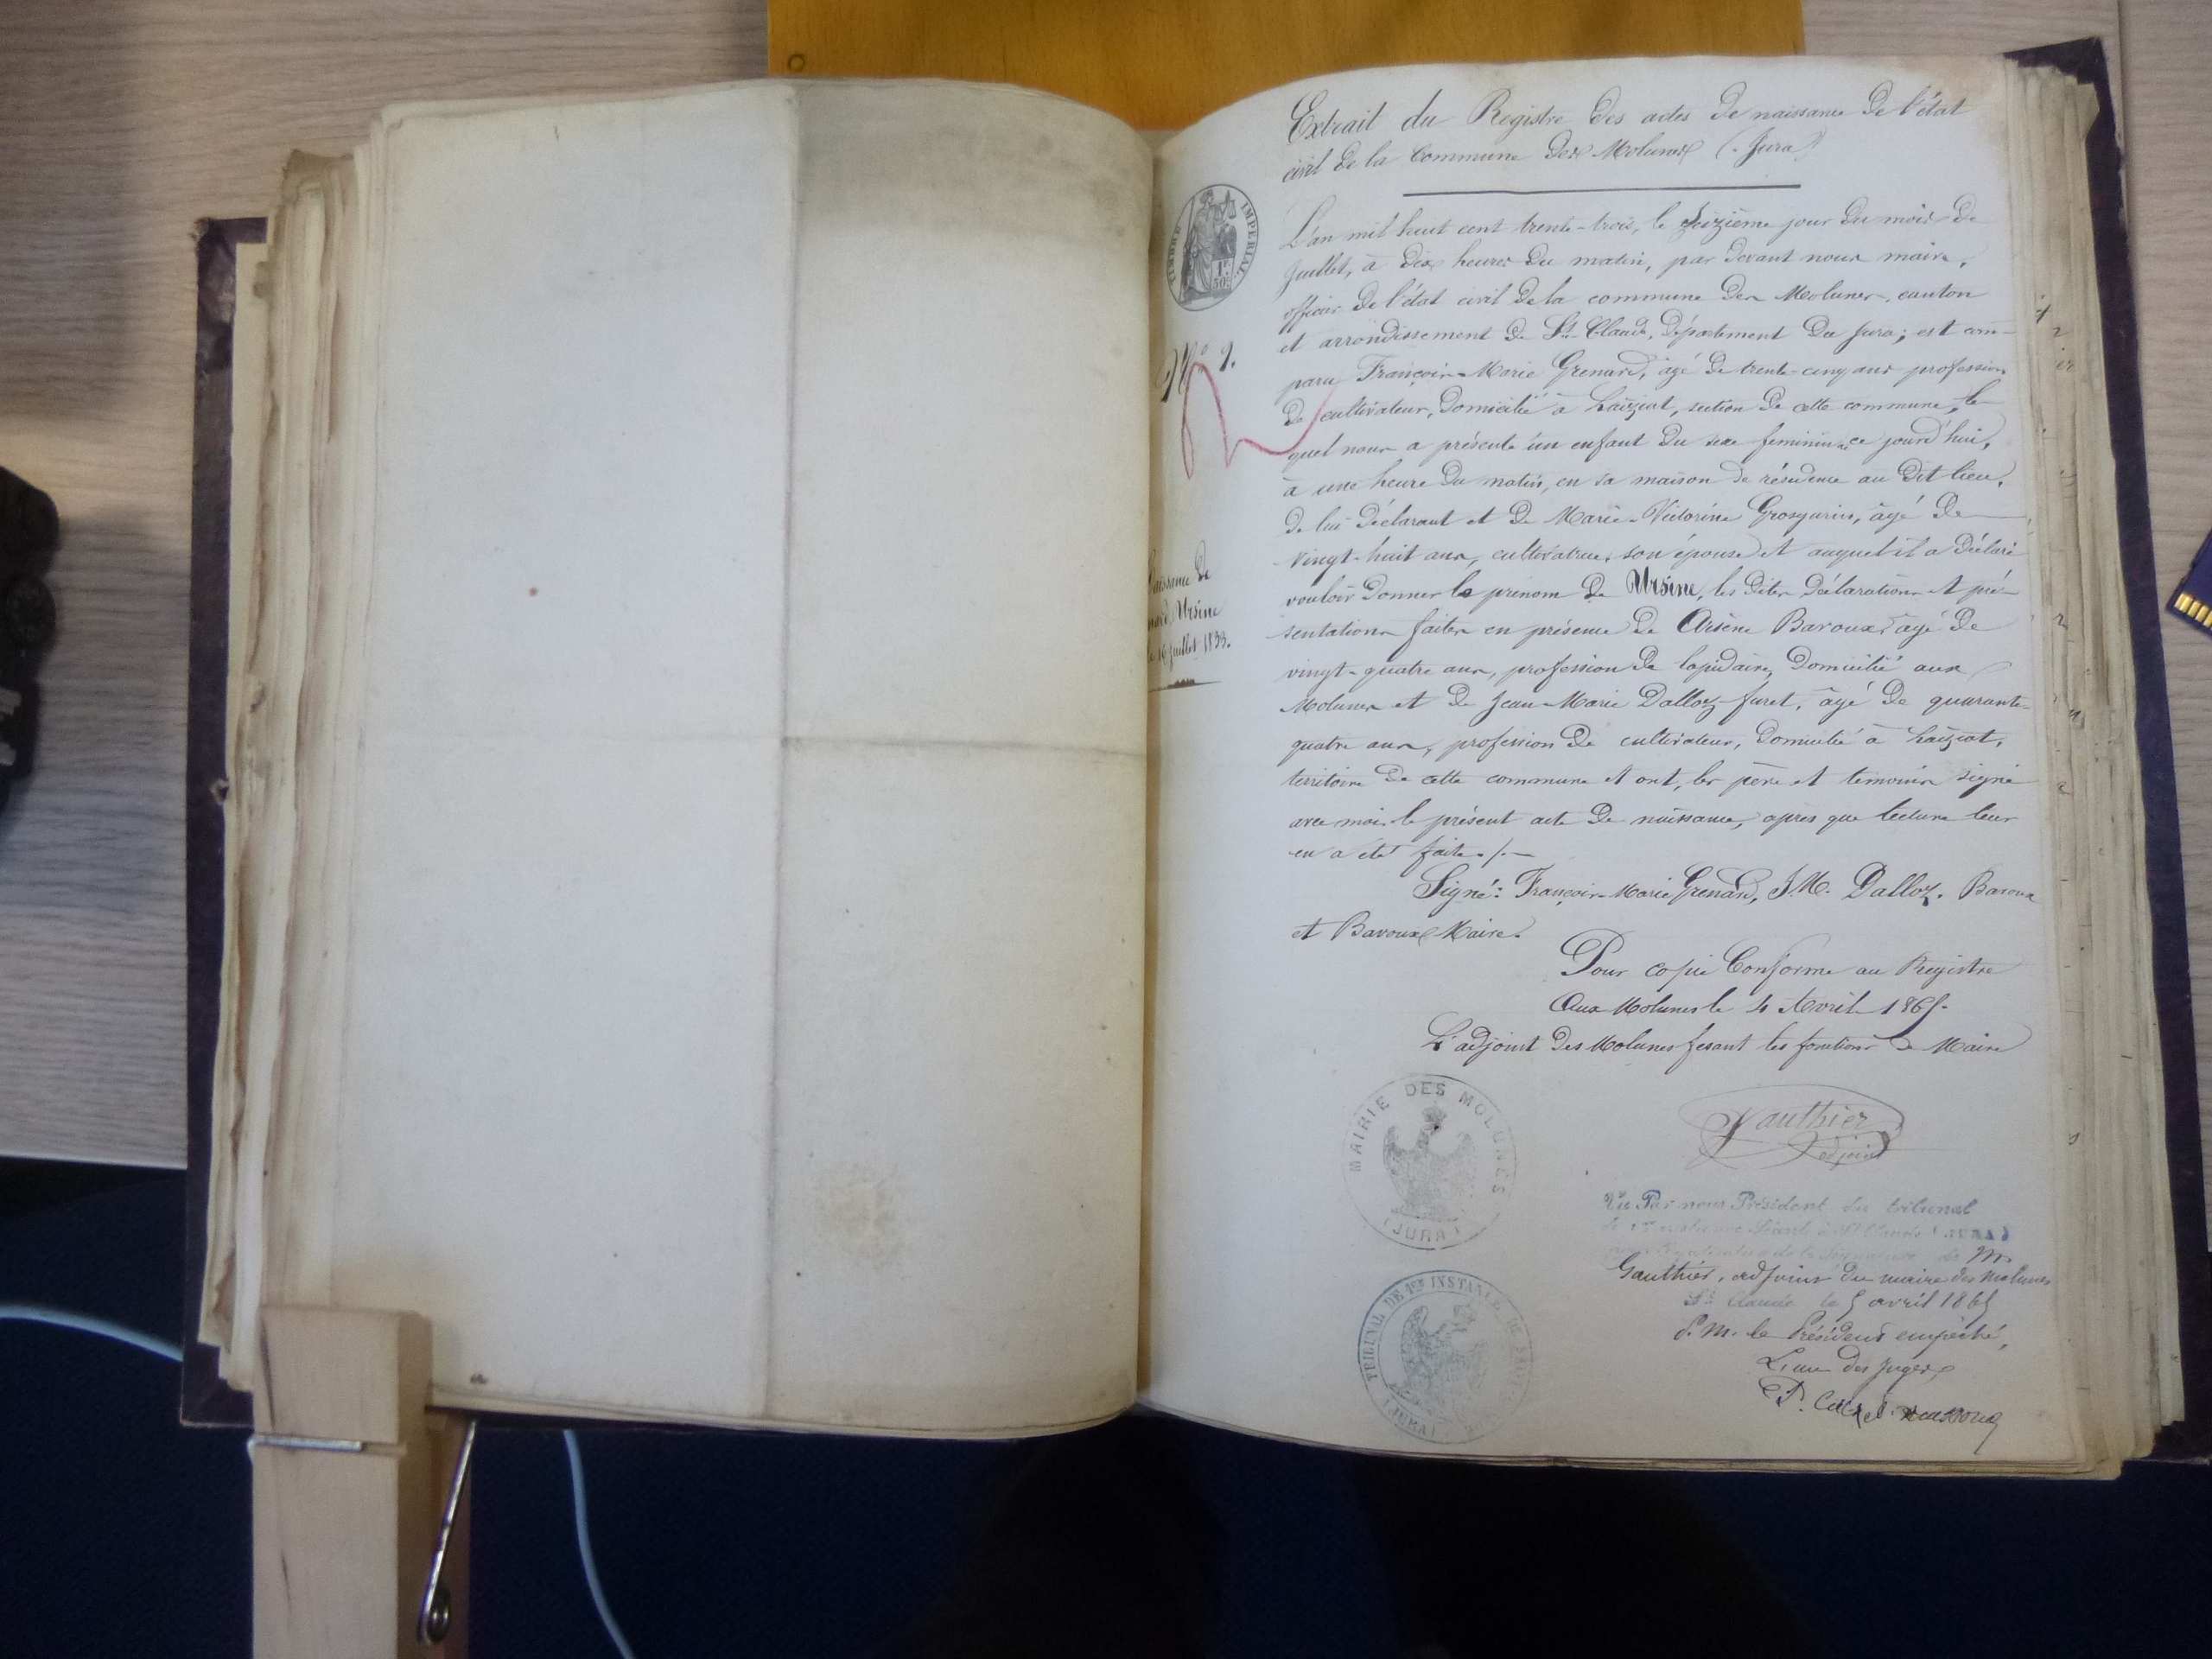 Extrait du Registre des actes de naissance de l'état
civil de la Commune des Molunes (Jura)
TIMBRE IMPERIAL
1F.
50C.
L'an mil huit cent trente-trois, le seizième jour du mois de
Juillet, à dix heures du matin, par devant nous maire,
officier de l'état civil de la commune des Molunes, canton
et arrondissement de St-Claude, département du Jura; est com-
N° 9.
paru François-Marie Grenard, âgé de trente-cinq ans profession
de cultivateur, domicilié à Laisiat, section de cette commune, le-
quel nous a présenté un enfant du sexe feminin né ce jourd'hui,
à une heure du matin, en sa maison de résidence au dit lieu,
de lui déclarant et de Marie-Victorine Grosgurin, âgé de
vingt-huit ans, cultivatrice, son épouse et auquel il a déclaré
Naissance de
Ursine
16 juillet 1833.
vouloir donner le prénom de Ursine, les dites déclarations et pré-
sentations faites en présence de Arsène Bavoux, âgé de
vingt-quatre ans, profession de lapidaire, domicilié aux
Molunes et de Jean-Marie Dalloz-furet, âgé de quarante-
quatre ans, profession de cultivateur, domicilié à Laisiat,
territoire de cette commune et ont, les père et témoins signé
avec moi le présent acte de naissance, après que lecture leur
en a été faite./.
Signé: François-Marie Grenard, J.M. Dalloz, Bavoux
et Bavoux Maire.
Pour copie Conforme au Registre
Aux Molunes le 4 Avril 1865.
L'adjoint des Molunes fesant les fonctions de Maire
Gauthier
adjoint
MAIRIE DES MOLUNES
(JURA)
Vu Par nous Président du tribunal
de 1re instance séant à St Claude (JURA)
de la signature de M.
Gauthier, adjoint du maire des Molunes
St Claude le 5 avril 1865
P. M. le Président empêché,
L'un des juges
TRIBUNAL DE 1ERE INSTANCE DE
(JURA)